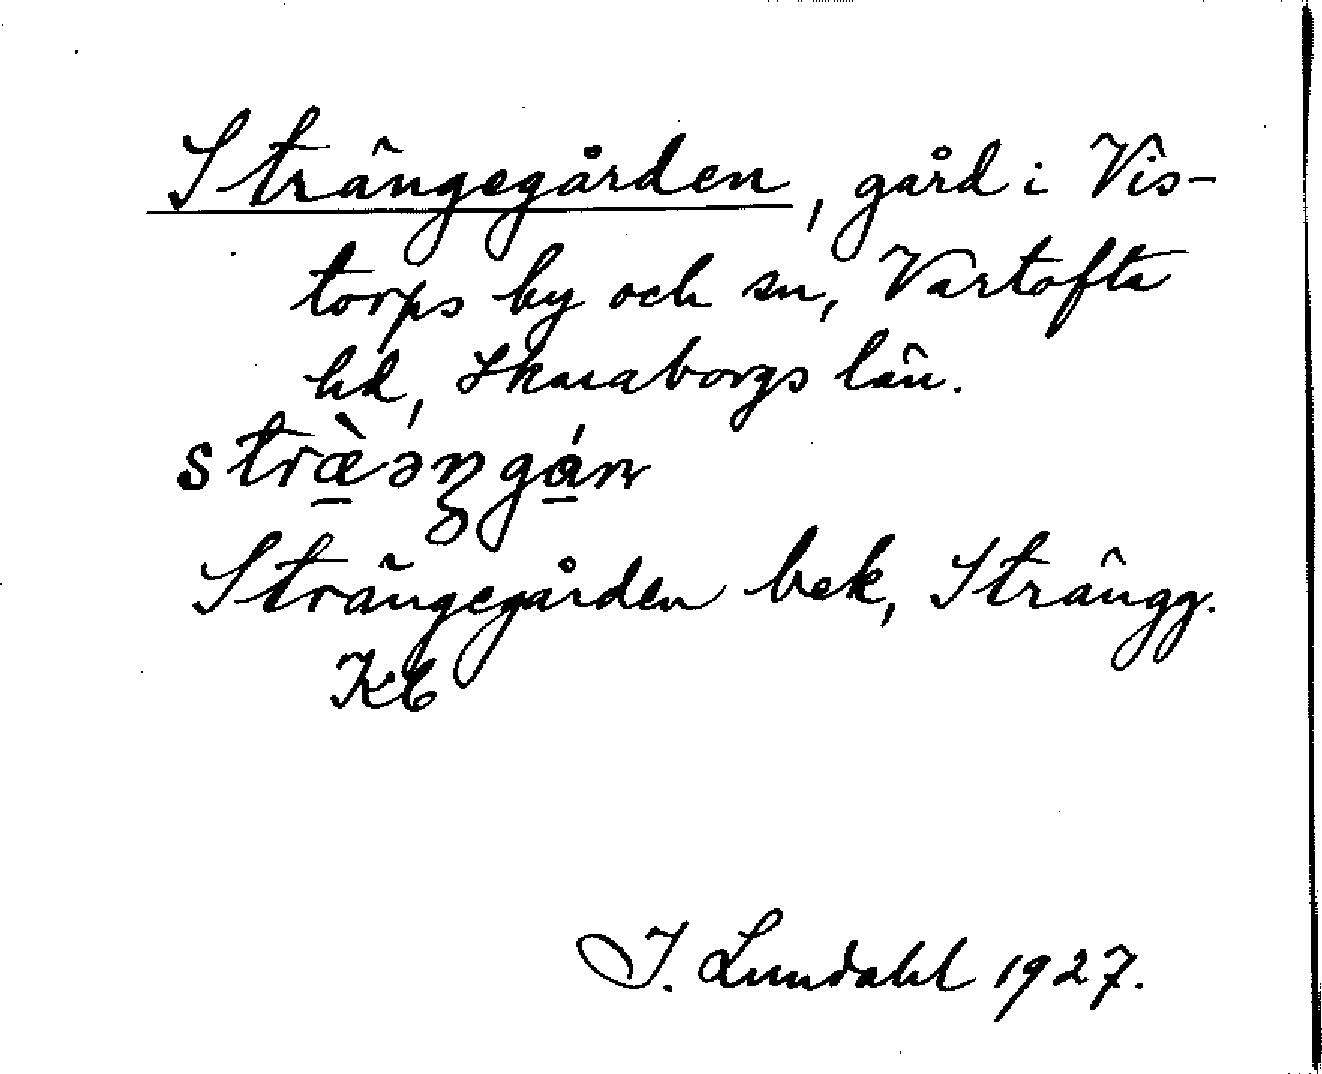 Strängegården, gård i Vis-
torps by och sn, Vartofta
hd, Skaraborgs län.
stræ̀əŋgán
Strängegården bek, Strängg.
KE
I. Lundahl 1927.